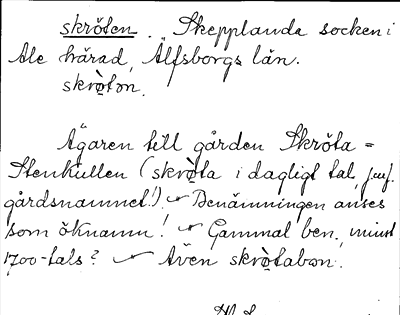 skröten. Skepplanda socken i
Ale härad, Älfsborgs län.
skrò̤tən.
Ägaren till gården Skröta =
Stenkullen (skrò̤ta i dagligt tal, jmf.
gårdsnamnet!). Benämningen anses
som öknamn! Gammal ben., minst
1700-tals? Även skrò̤tabən.